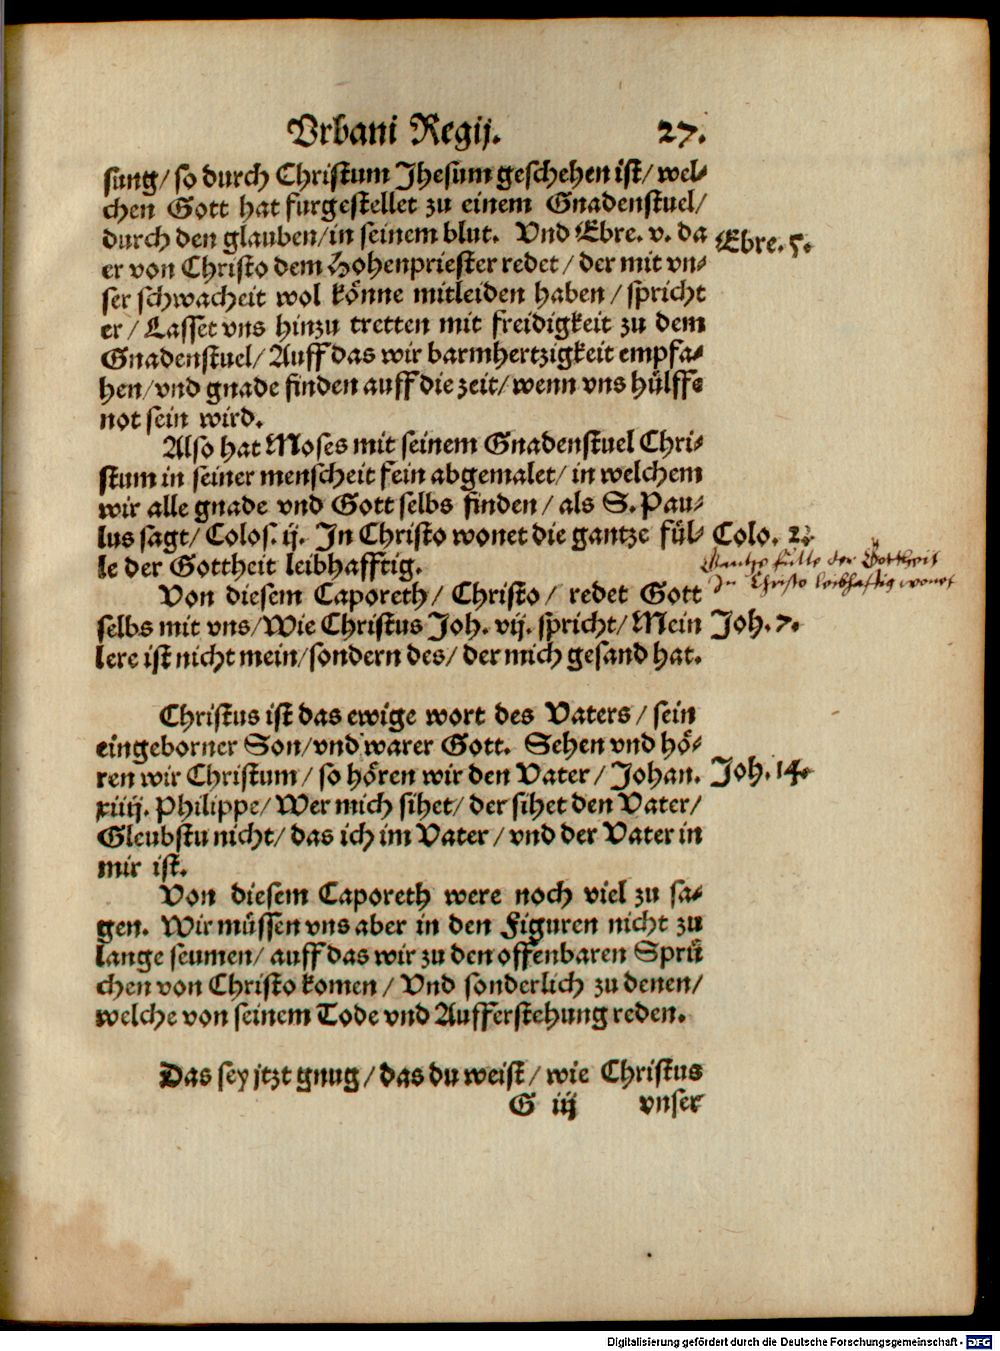 Vrbani Regij. 27.
sung/ so durch Christum Jhesum geschehen ist/ wel-
chen Gott hat furgestellet zu einem Gnadenstuel/
durch den glauben/ in seinem blut. Vnd Ebre. v. da
Ebre. 5.
er von Christo dem Hohenpriester redet/ der mit vn-
ser schwacheit wol könne mitleiden haben/ spricht
er/ Lasset vns hinzu tretten mit freidigkeit zu dem
Gnadenstuel/ Auff das wir barmhertzigkeit empfa-
hen/ vnd gnade finden auff die zeit/ wenn vns hülffe
not sein wird.
Also hat Moses mit seinem Gnadenstuel Chri-
stum in seiner menscheit fein abgemalet/ in welchem
wir alle gnade vnd Gott selbs finden/ als S. Pau-
lus sagt/ Colos. ij. In Christo wonet die gantze fül-
Colo. 2.
le der Gottheit leibhafftig.
Gantze fülle der Gottheit
In Christo leibhaftig wonet
Von diesem Caporeth/ Christo/ redet Gott
selbs mit vns/ Wie Christus Joh. vij. spricht/ Mein
Joh. 7.
lere ist nicht mein/ sondern des/ der mich gesand hat.
Christus ist das ewige wort des Vaters/ sein
eingeborner Son/ vnd warer Gott. Sehen vnd hö-
ren wir Christum/ so hören wir den Vater/ Johan.
Joh. 14.
xiiij. Philippe/ Wer mich sihet/ der sihet den Vater/
Gleubstu nicht/ das ich im Vater/ vnd der Vater in
mir ist.
Von diesem Caporeth were noch viel zu sa-
gen. Wir müssen vns aber in den Figuren nicht zu
lange seumen/ auff das wir zu den offenbaren Sprü
chen von Christo komen/ Vnd sonderlich zu denen/
welche von seinem Tode vnd Aufferstehung reden.
Das sey jtzt gnug/ das du weist/ wie Christus
G iij vnser
Digitalisierung gefördert durch die Deutsche Forschungsgemeinschaft - DFG